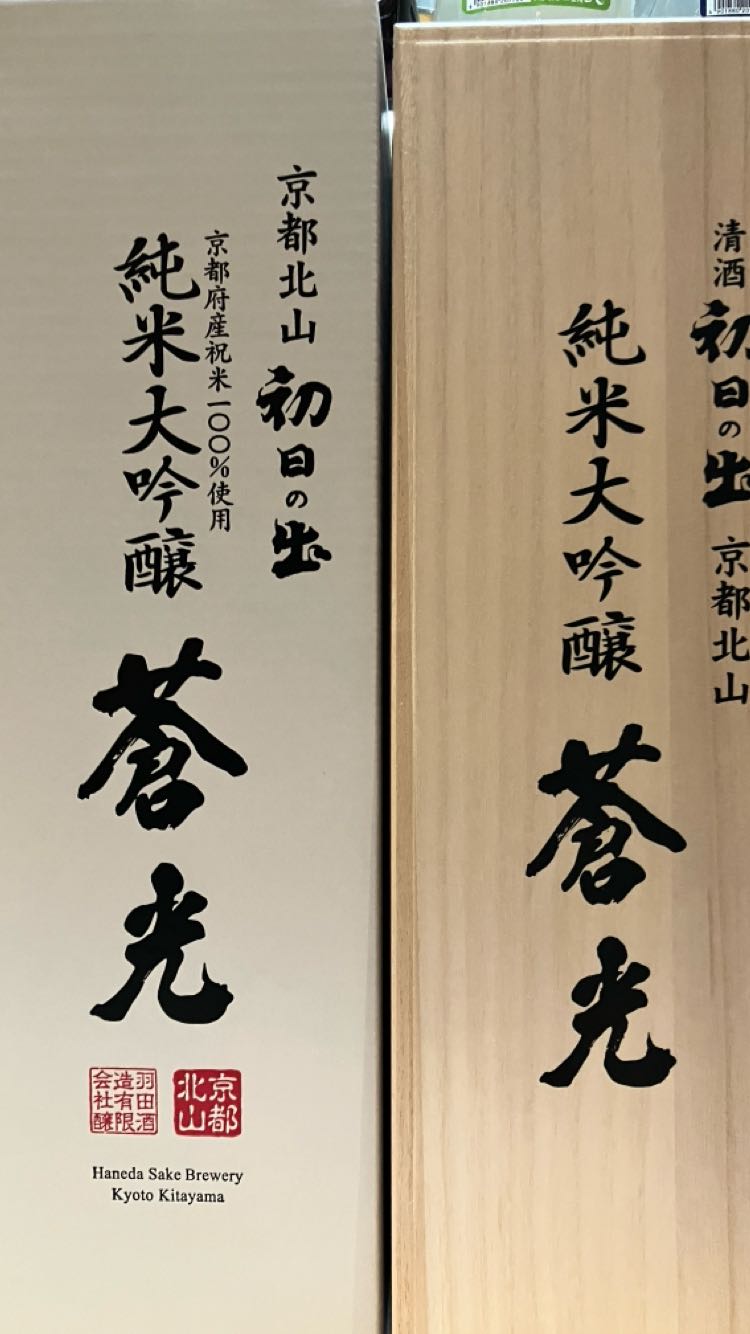 京都北山 初日の出
京都府産祝米一〇〇%使用
純米大吟醸
蒼光
羽田酒
造有限
会社醸
京都
北山
Haneda Sake Brewery
Kyoto Kitayama
清酒 初日の出 京都北山
純米大吟醸
蒼光